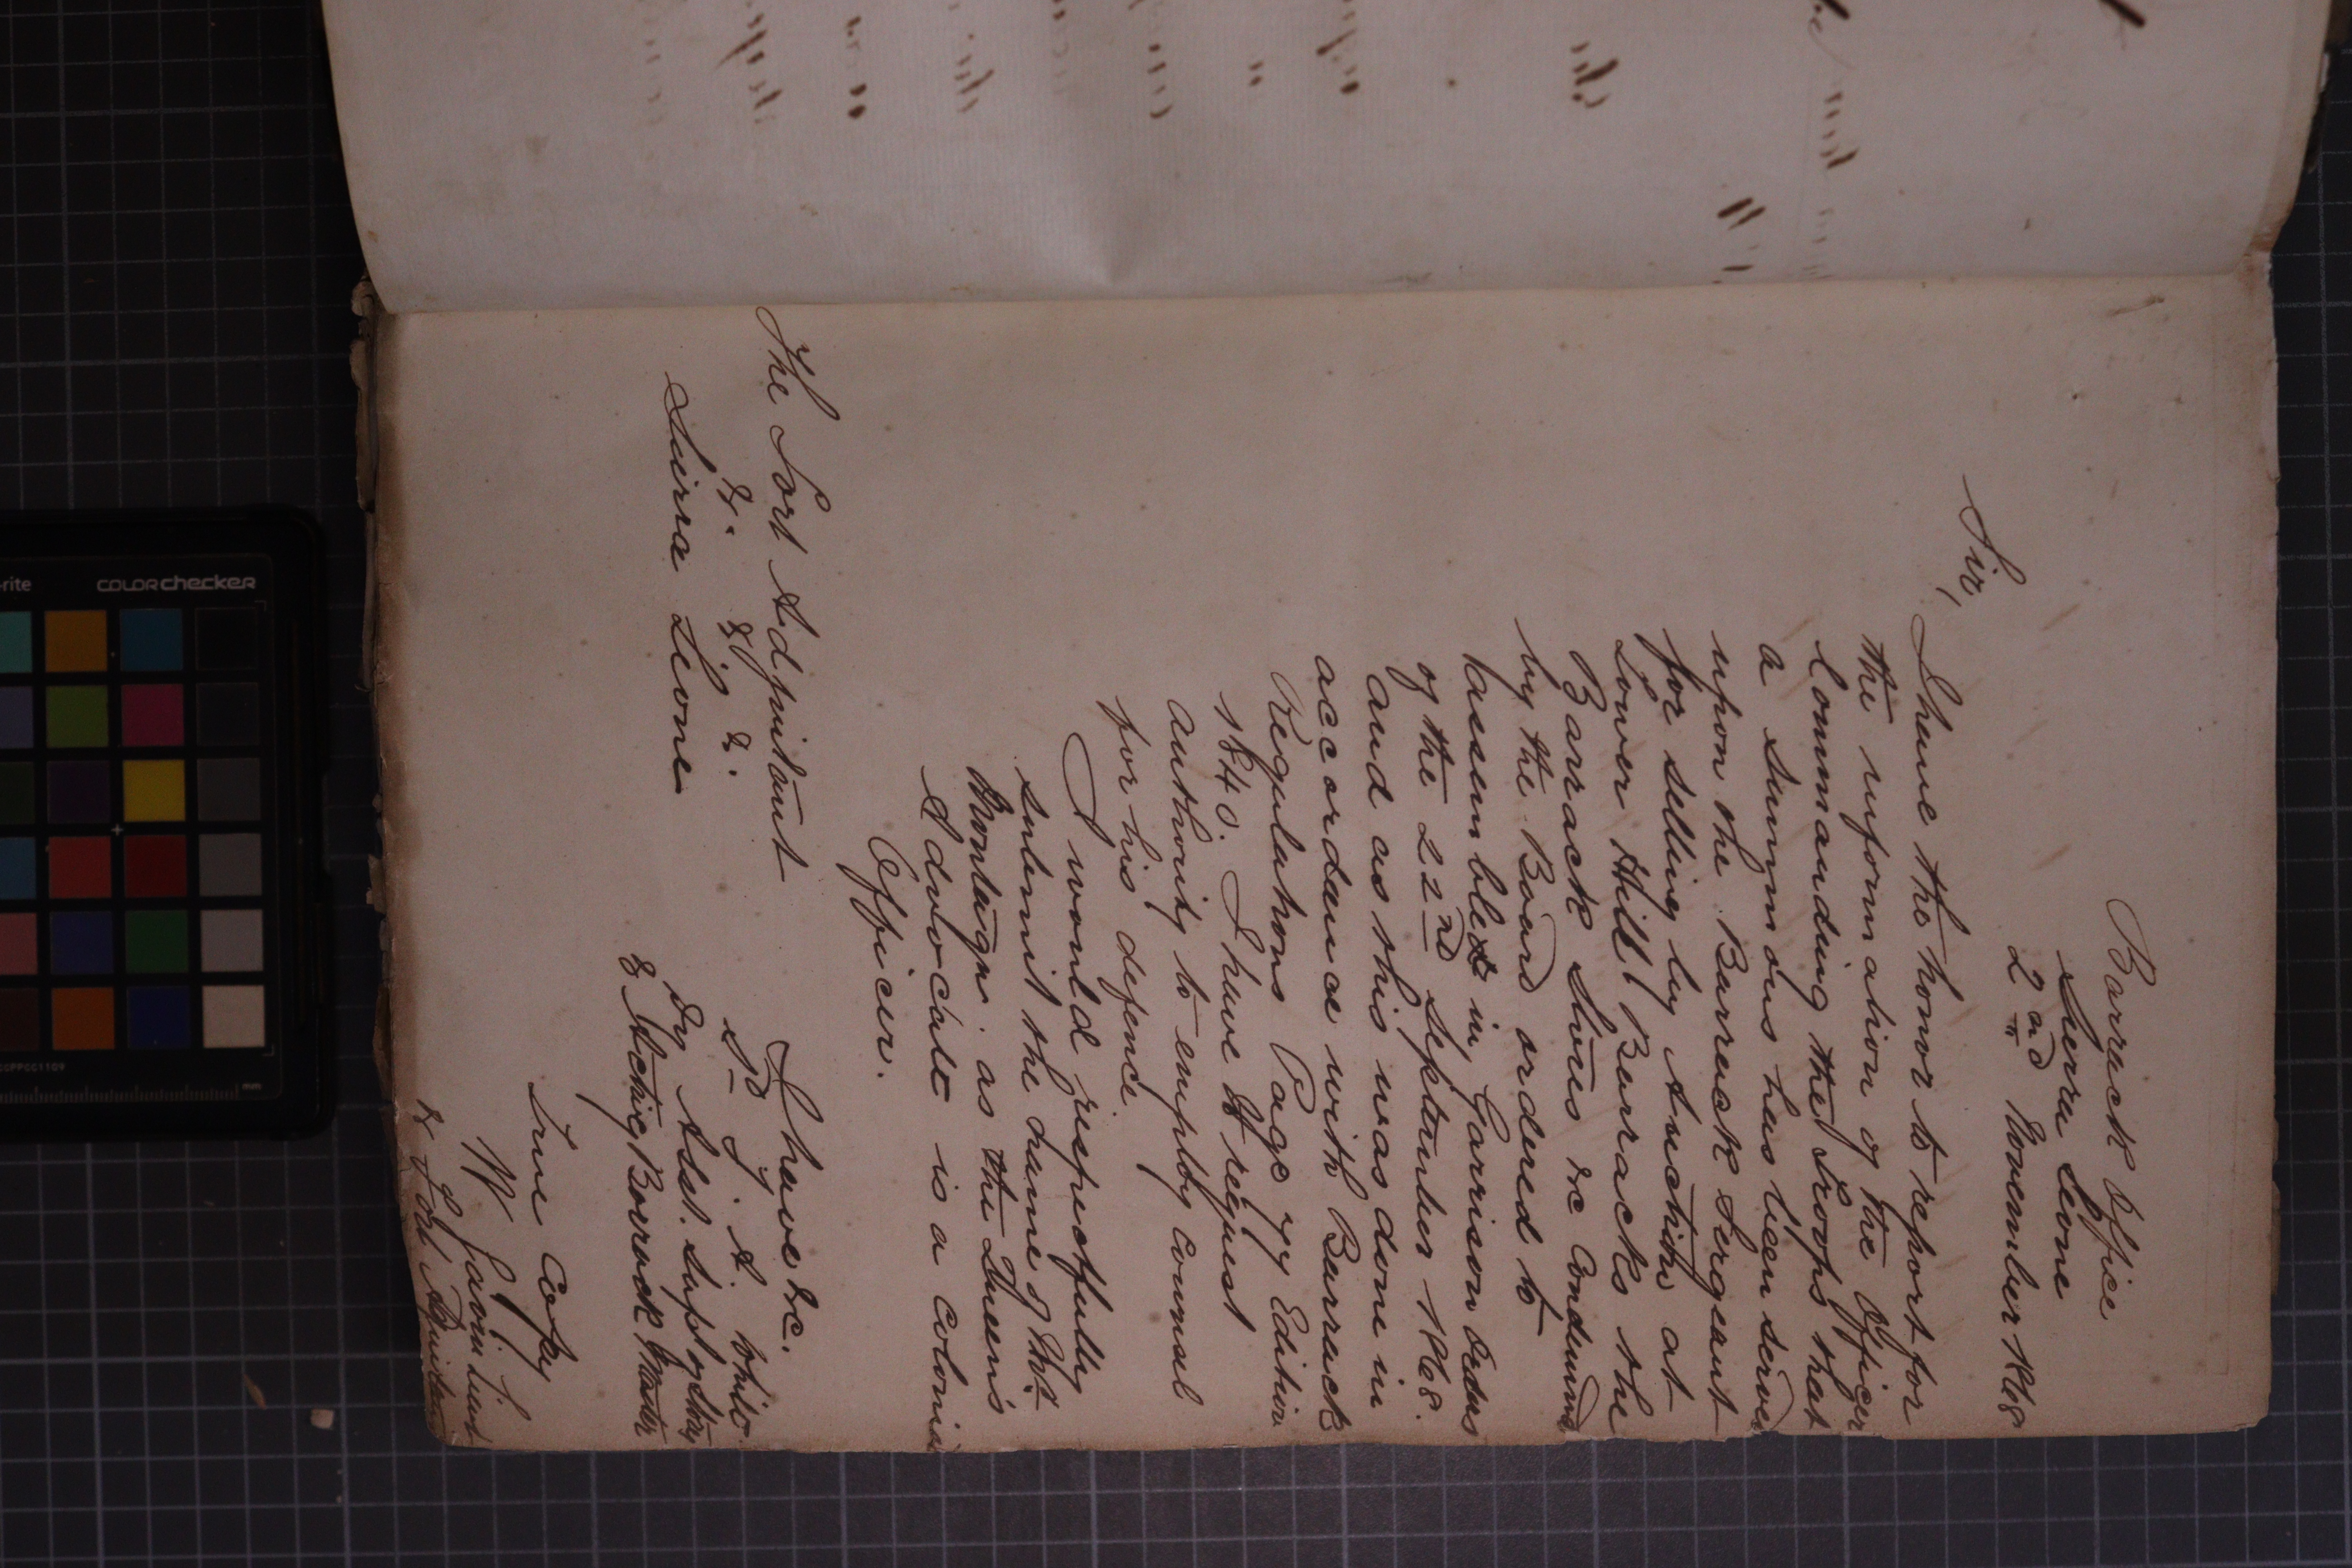 Barrack Office
Sierra Leone
2nd November 1868
Sir,
I have the honor to report for
the information of the Officer
Commanding the Troops that
a Summons has been served
upon the Barrack Sergeant
for selling by Auction at
Tower Hill Barracks the
Barrack Stores &c Condemned
by the Board ordered to
assemble in Garrison Orders
of the 22nd September 1868.
and as this was done in
accordance with Barrack
Regulations Page 77 Edition
1840. I have to request
authority to employ counsel
for his defence
I would respectfully
submit the name of Mr.
Montagu. as the Queen's
Advocate is a Colonial
Officer.
I have &c.
The Fort Adjutant
&. &. &.
Sierra Leone
Sd J. A.
Dy Asst. Supt of Stores
& Acting Barrack Master
True Copy
W Lieut
& Fort Adjutant
COLORchecker
-rite